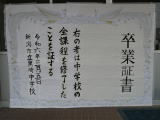 卒業証書
右の者は中学校の
全課程を修了した
ことを証する
令和六年三月五日
新潟市立黒埼中学校